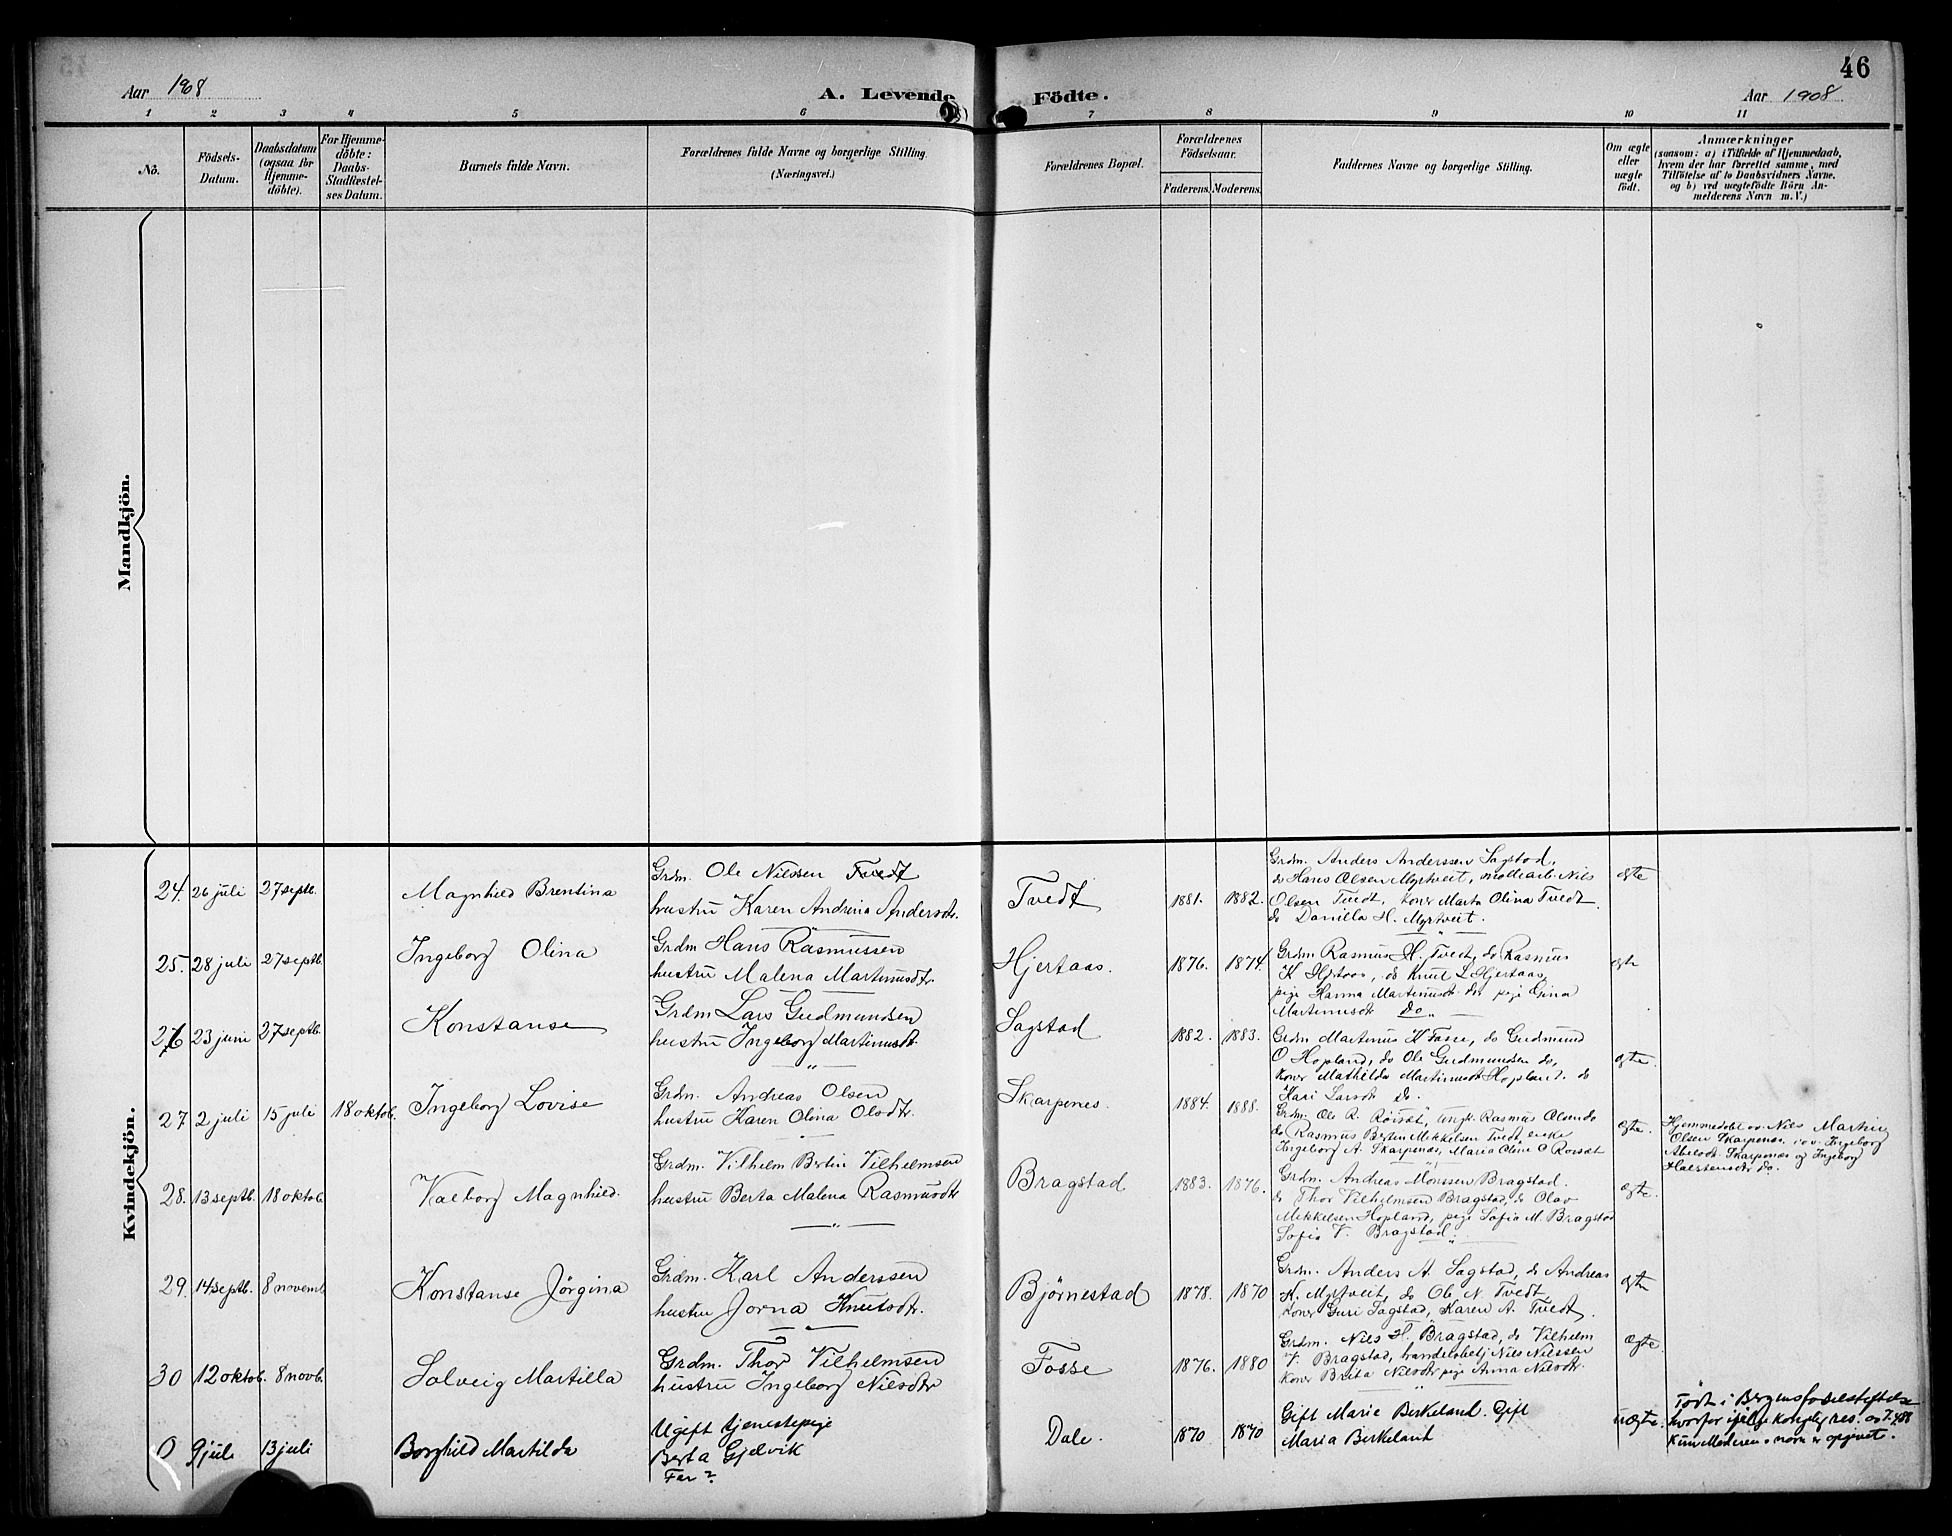 46
Aar 1908
A. Levende Födte.
Aar 1908
1 2 3 4 5 6 7 8 9 10 11
No.
Födsels-Datum.
Daabsdatum (ogsaa for Hjemme-döbte).
For Hjemme-döbte: Daabs-Stadfæstel-ses Datum.
Barnets fulde Navn.
Forældrenes fulde Navne og borgerlige Stilling.
(Næringsvei.)
Forældrenes Bopæl.
Forældrenes Födselsaar.
Faderens. Moderens.
Faddernes Navne og borgerlige Stilling.
Om ægte eller uægte födt.
Anmærkninger
(saasom: a) i Tilfælde af Hjemmedaab,
hvem der har forrettet samme, med
Tilföielse af to Daabsvidners Navne.
og b) ved uægtefödte Börn An-
melderens Navn m.V.)
Mandkjön.
Kvindekjön.
24. 26 juli 27 septb. Magnhild Brentina
Grdm. Ole Nilssen Tvedt
hustru Karen Andrina Andersdt.
Tvedt 1881. 1882.
Grdm. Anders Anderssen Sagstad,
do Hans Olsen Myrtveit, Nils
Olsen Tvedt, koner Marta Olina Tvedt
do Danilla H. Myrtveit.
ægte
25. 28 juli 27 septb. Ingeborg Olina
Grdm Hans Rasmussen
hustru Malena Martinusdtr.
Hjertaas. 1876. 1874.
Grdm Rasmus H. Tvedt, do Rasmus
K Hjrtaas, do Knut L Hjertaas,
pige Hanna Martinusdt. do pige Gina
Martinusdt do
ægte
26 23 juni 27 septb. Konstanse
Grdm Lars Gudmundsen
hustru Ingeborg Martinusdt.
Sagstad 1882. 1883.
Grdm Martinus K Fosse, do Gudmund
O Hopland, do Ole Gudmundsen do,
koner Mathilda Martinusdt Hopland. do
Kari Larsdt do.
ægte.
27. 2 juli 15 juli 18 oktob. Ingeborg Lovise
Grdm. Andreas Olsen
hustru Karen Olina Olsdtr.
Skarpenes. 1884. 1888.
Grdm. Ole R. Rörsæt, ungk. Rasmus Olsen do
do Rasmus Bertin Mikkelsen Tvedt, enke
Ingeborg A. Skarpenæs, Maria Oline O Rorsæt
ægte.
Hjemmedøbt av Nils Martin
Olsen Skarpenæs. i ov. Ingeborg
Abelsdt. Skarpenæs og Ingeborg
Halstensdtr do.
28. 13 septb. 18 oktob. Valborg Magnhild.
Grdm. Vilhelm Bertin Vilhelmsen
hustru Berta Malena Rasmusdt
Bragstad 1883. 1876.
Grdm. Andreas Monssen Bragstad.
do Thor Vilhelmsen Bragstad, do Olav
Mikkelsen Hopland, pige Sofia M. Bragstad
Sofia V. Bragstad.
ægte.
29. 14 septb. 8 novemb. Konstanse Jörgina
Grdm. Karl Anderssen
hustru Jorna Knutsdtr.
Bjørnestad 1878. 1870
Grdm. Anders A. Sagstad, do Andreas
K. Myrtveit, do Ole N. Tvedt,
koner Guri Sagstad, Karen A. Tvedt.
ægte
30 12 oktob. 8 novb. Solveig Martilla
Grdm. Thor Vilhelmsen
hustru Ingeborg Nilsdtr
Fosse 1876. 1880
Grdm. Nils H. Bragstad, do Vilhelm
V. Bragstad, handelsbetj Nils Nilssen
kone Brita Nilsdtr pige Anna Nilsdtr.
Ægte.
0 9 juli 13 juli Borghild Martilda
Ugift tjenestepige
Berta Gjelvik
Far?
Dale. 1870 1870
Gift Marie Berkeland. Gift
Maria Berkeland
uægte.
Født i Bergens fødselsstiftelse
hvorfor ifølge kongleg res. av
kun Moderens navn er opgivet.